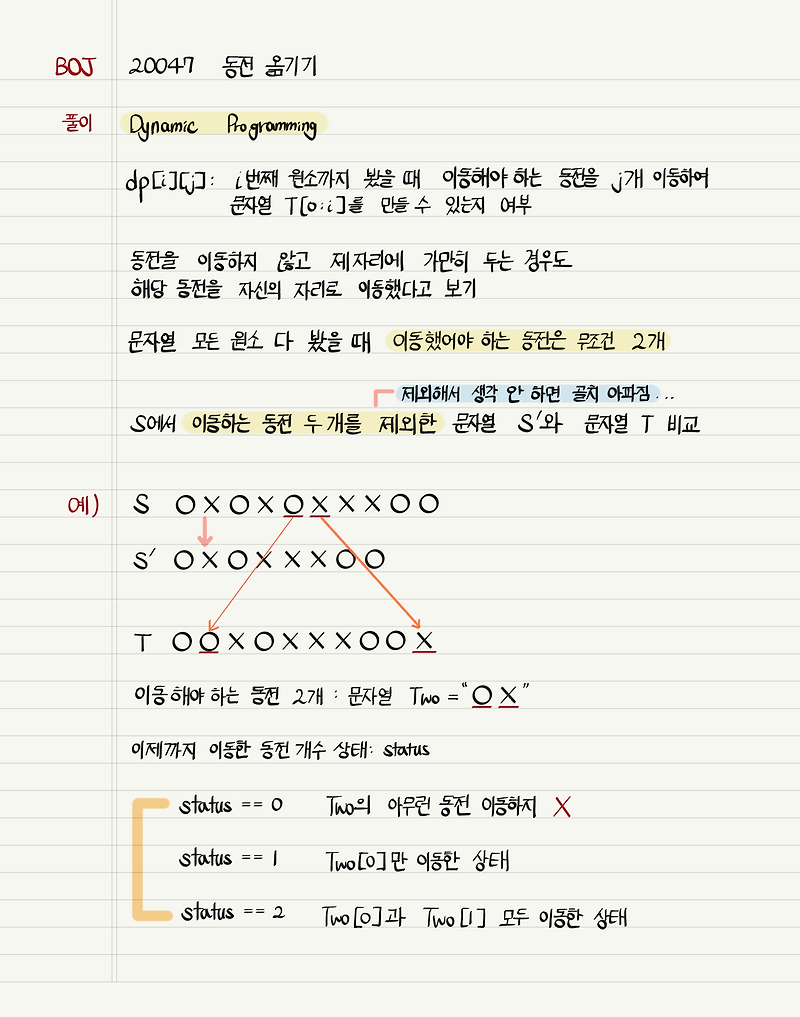 BOJ 20047 동전 옮기기
풀이 Dynamic Programming
dp[i][j]: i번째 원소까지 봤을 때 이동해야 하는 동전을 j개 이동하여
문자열 T[0:i]를 만들 수 있는지 여부
동전을 이동하지 않고 제자리에 가만히 두는 경우도
해당 동전을 자신의 자리로 이동했다고 보기
문자열 모든 원소 다 봤을 때 이동했어야 하는 동전은 무조건 2개
제외해서 생각 안 하면 골치 아파짐...
S에서 이동하는 동전 두개를 제외한 문자열 S'와 문자열 T 비교
예) S O X O X O X X X O O
S' O X O X X X O O
T O O X O X X X O O X
이동해야 하는 동전 2개 : 문자열 Two = "O X"
이제까지 이동한 동전 개수 상태: status
status == 0 Two의 아무런 동전 이동하지 X
status == 1 Two[0]만 이동한 상태
status == 2 Two[0]과 Two[1] 모두 이동한 상태